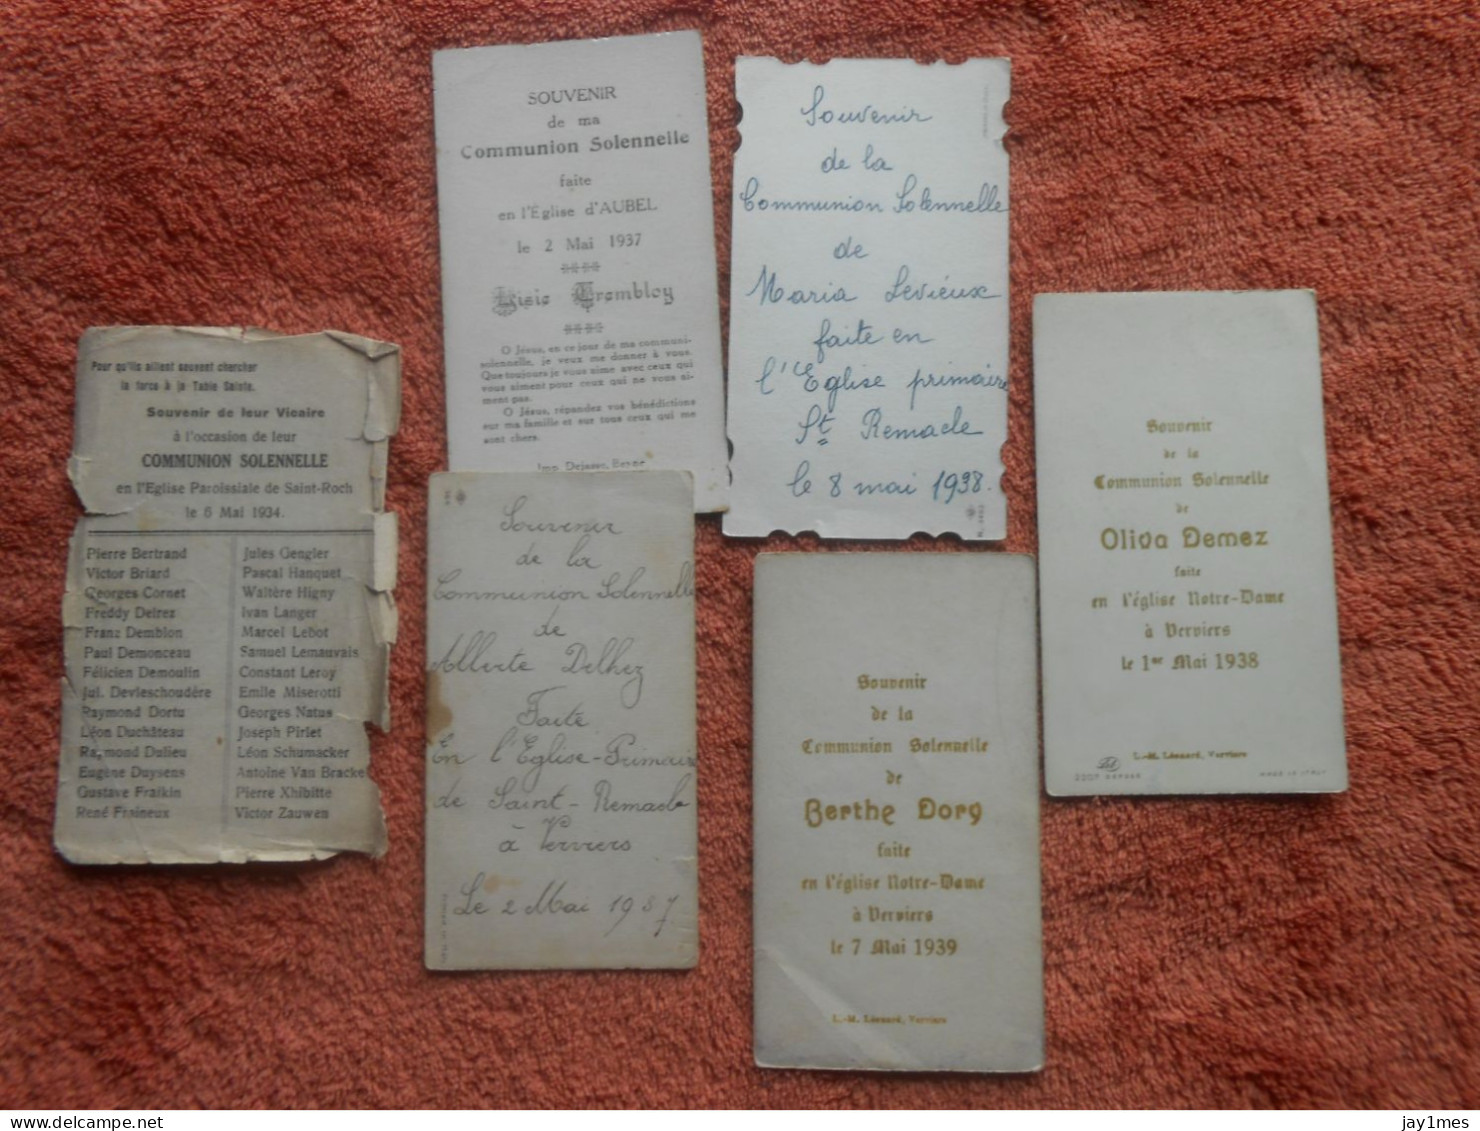 SOUVENIR
de ma
Communion Solennelle
faite
en l'Église d'AUBEL
le 2 Mai 1937
Lisie Trembloy
O Jésus, en ce jour de ma communi-
solennelle, je veux me donner à vous.
Que toujours je vous aime avec ceux qui
vous aiment pour ceux qui ne vous ai-
ment pas.
O Jésus, répandez vos bénédictions
sur ma famille et sur tous ceux qui me
sont chers.
Imp. Dejasse,
Souvenir
de la
Communion Solennelle
de
Maria Levieux
faite en
l'Eglise primaire
St Remacle
le 8 mai 1938.
Pour qu'ils aillent souvent chercher
la force à la Table Sainte.
Souvenir de leur Vicaire
à l'occasion de leur
COMMUNION SOLENNELLE
en l'Eglise Paroissiale de Saint-Roch
le 6 Mai 1934.
Pierre Bertrand
Victor Briard
Georges Cornet
Freddy Delrez
Franz Demblon
Paul Demonceau
Félicien Demoulin
Jul. Devleschoudère
Raymond Dortu
Léon Duchâteau
Raymond Dulieu
Eugène Duysens
Gustave Fraikin
René Fraineux
Jules Gengler
Pascal Hanquet
Waltère Higny
Ivan Langer
Marcel Lebot
Samuel Lemauvais
Constant Leroy
Emile Miserotti
Georges Natus
Joseph Pirlet
Léon Schumacker
Antoine Van Bracke
Pierre Xhibitte
Victor Zauwen
Souvenir
de la
Communion Solennelle
de
Alberte Delhez
Faite
En l'Eglise-Primaire
de Saint-Remacle
à Verviers
Le 2 Mai 1937
Souvenir
de la
Communion Solennelle
de
Oliva Demez
faite
en l'église Notre-Dame
à Verviers
le 1er Mai 1938
L.-M. Léonard, Verviers
MADE IN ITALY
Souvenir
de la
Communion Solennelle
de
Berthe Dory
faite
en l'église Notre-Dame
à Verviers
le 7 Mai 1939
L.-M. Léonard, Verviers
www.delcampe.net
jay1mes